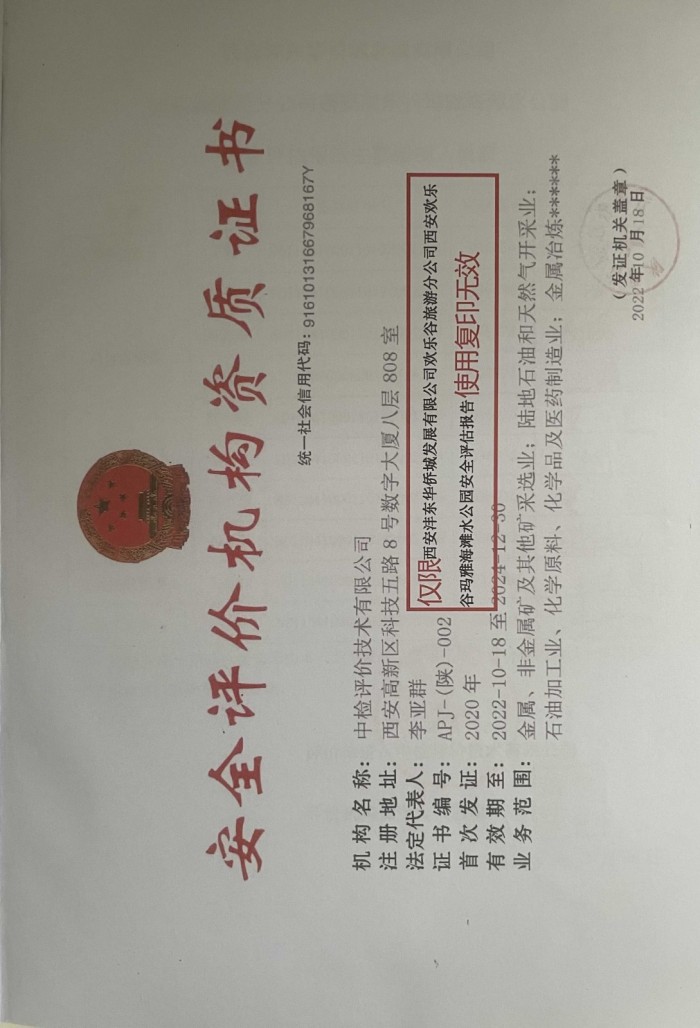 安全评价机构资质证书
统一社会信用代码：91610131667968167Y
机构名称：中检评价技术有限公司
注册地址：西安高新区科技五路8号数字大厦八层808室
法定代表人：李亚群
证书编号：APJ-(陕)-002
首次发证：2020年
有效期至：2022-10-18至2024-12-30
业务范围：金属、非金属矿及其他矿采选业；陆地石油和天然气开采业；
石油加工业、化学原料、化学品及医药制造业；金属冶炼******
仅限西安沣东华侨城发展有限公司欢乐谷旅游分公司西安欢乐
谷玛雅海滩水公园安全评估报告使用复印无效
（发证机关盖章）
2022年10月18日